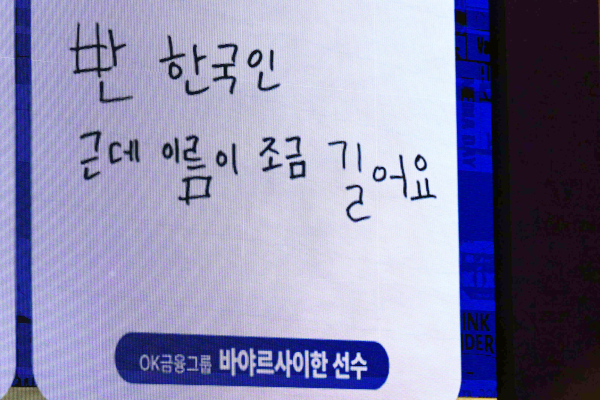 빤 한국인
근데 이름이 조금 길어요
OK금융그룹 바야르사이한 선수
INK
DER